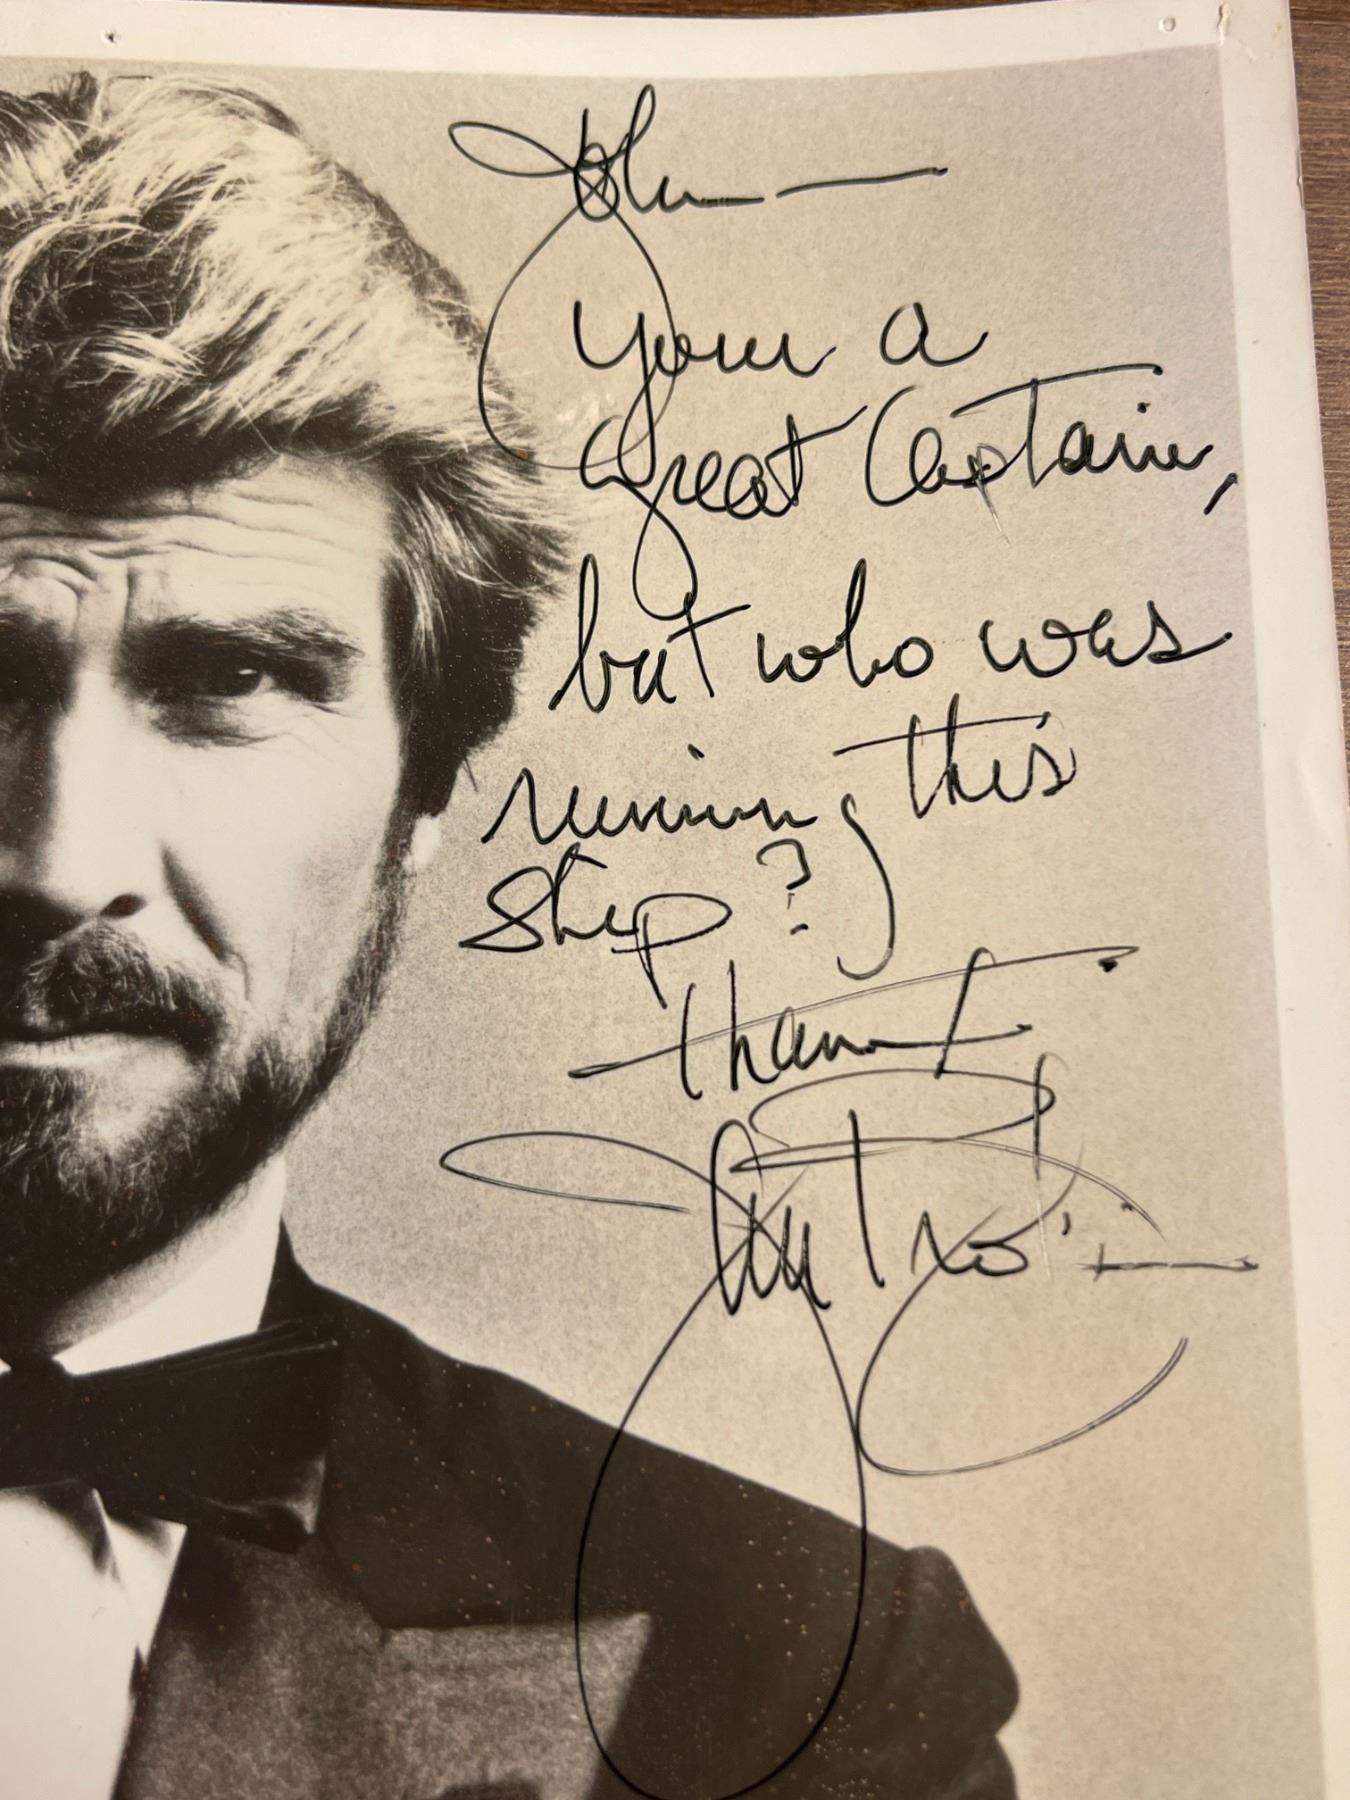 John —
Your a
great Captain,
but who was
running this
ship?
Thanks